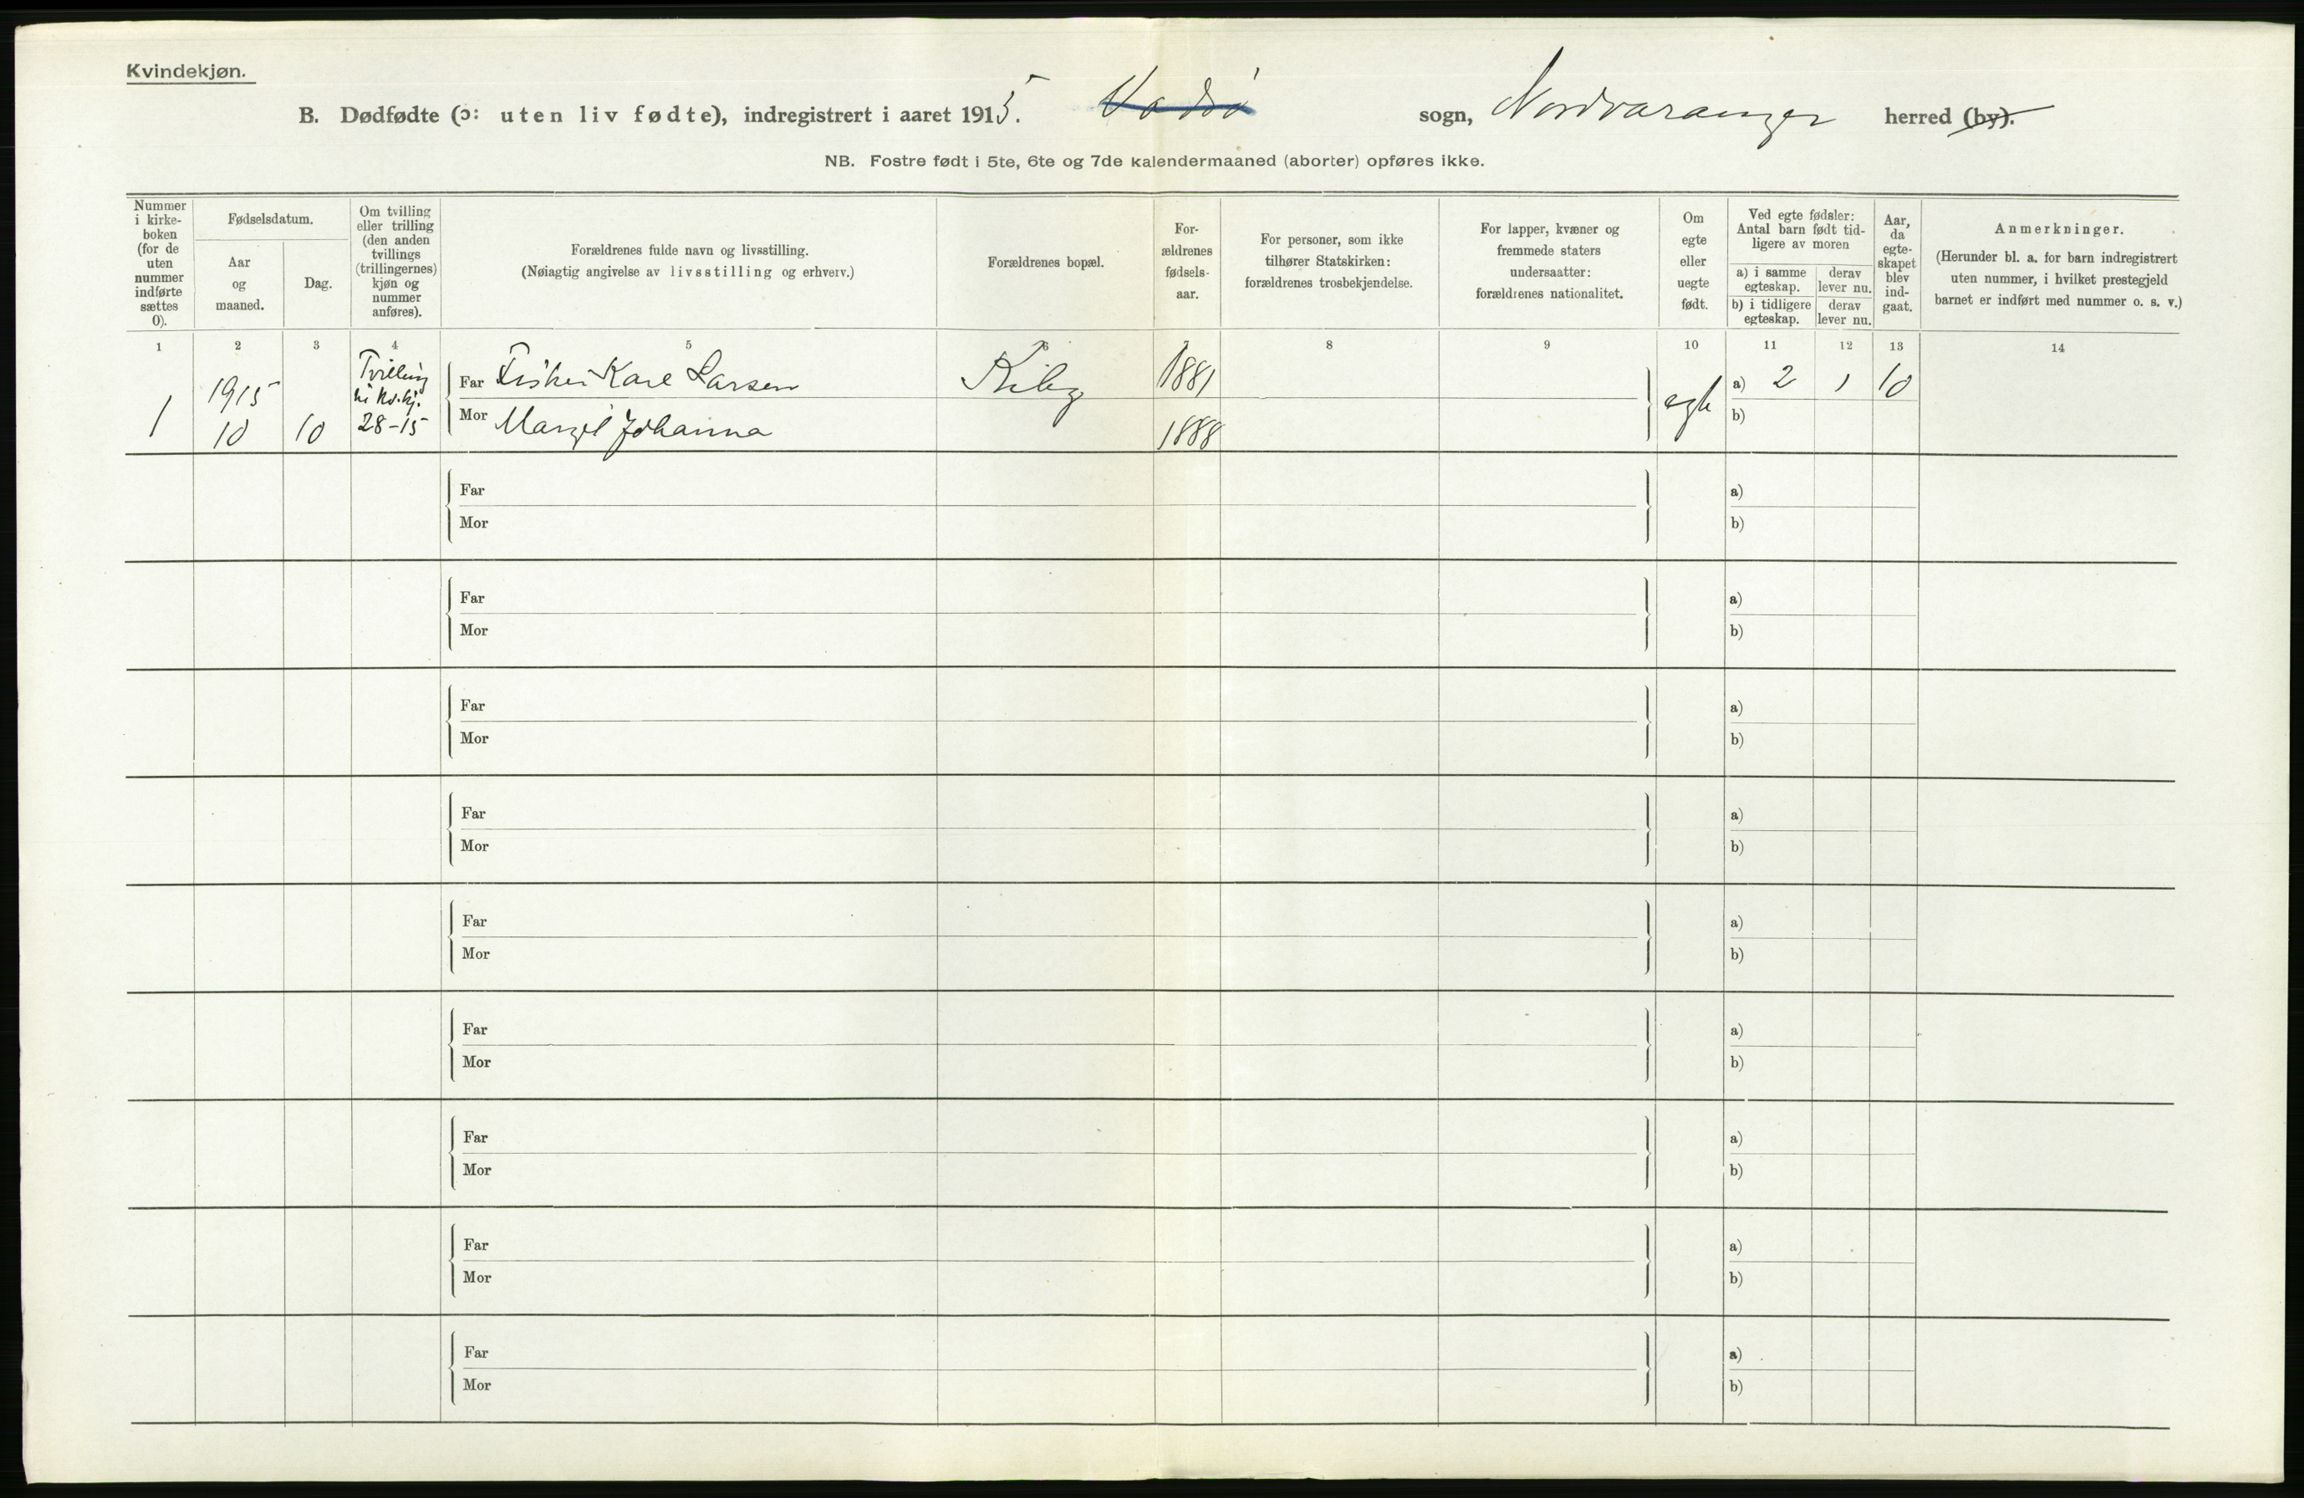 Kvindekjøn.
B. Dødfødte (ɔ: uten liv fødte), indregistrert i aaret 1915. Vadsø sogn, Nordvaranger herred (by).
NB. Fostre født i 5te, 6te og 7de kalendermaaned (aborter) opføres ikke.
Nummer i kirke-boken (for de uten nummer indførte sættes 0).
Fødselsdatum.
Aar og maaned.
Dag.
Om tvilling eller trilling (den anden tvillings (trillingernes) kjøn og nummer anføres).
Forældrenes fulde navn og livsstilling.
(Nøiagtig angivelse av livsstilling og erhverv.)
Forældrenes bopæl.
For-ældrenes fødsels-aar.
For personer, som ikke tilhører Statskirken: forældrenes trosbekjendelse.
For lapper, kvæner og fremmede staters undersaatter: forældrenes nationalitet.
Om egte eller uegte født.
Ved egte fødsler: Antal barn født tid-ligere av moren
a) i samme egteskap.
derav lever nu.
b) i tidligere egteskap.
derav lever nu.
Aar, da egte-skapet blev ind-gaat.
Anmerkninger.
(Herunder bl. a. for barn indregistrert uten nummer, i hvilket prestegjeld barnet er indført med nummer o. s. v.)
1 2 3 4 5 6 7 8 9 10 11 12 13 14
1
1915
10 10
Tvilling
28-15
Far Fisker Karl Larsen Kiby 1881 a) 2 1 10
Mor Margit Johanna 1888 b)
Far a)
Mor b)
Far a)
Mor b)
Far a)
Mor b)
Far a)
Mor b)
Far a)
Mor b)
Far a)
Mor b)
Far a)
Mor b)
Far a)
Mor b)
Far a)
Mor b)